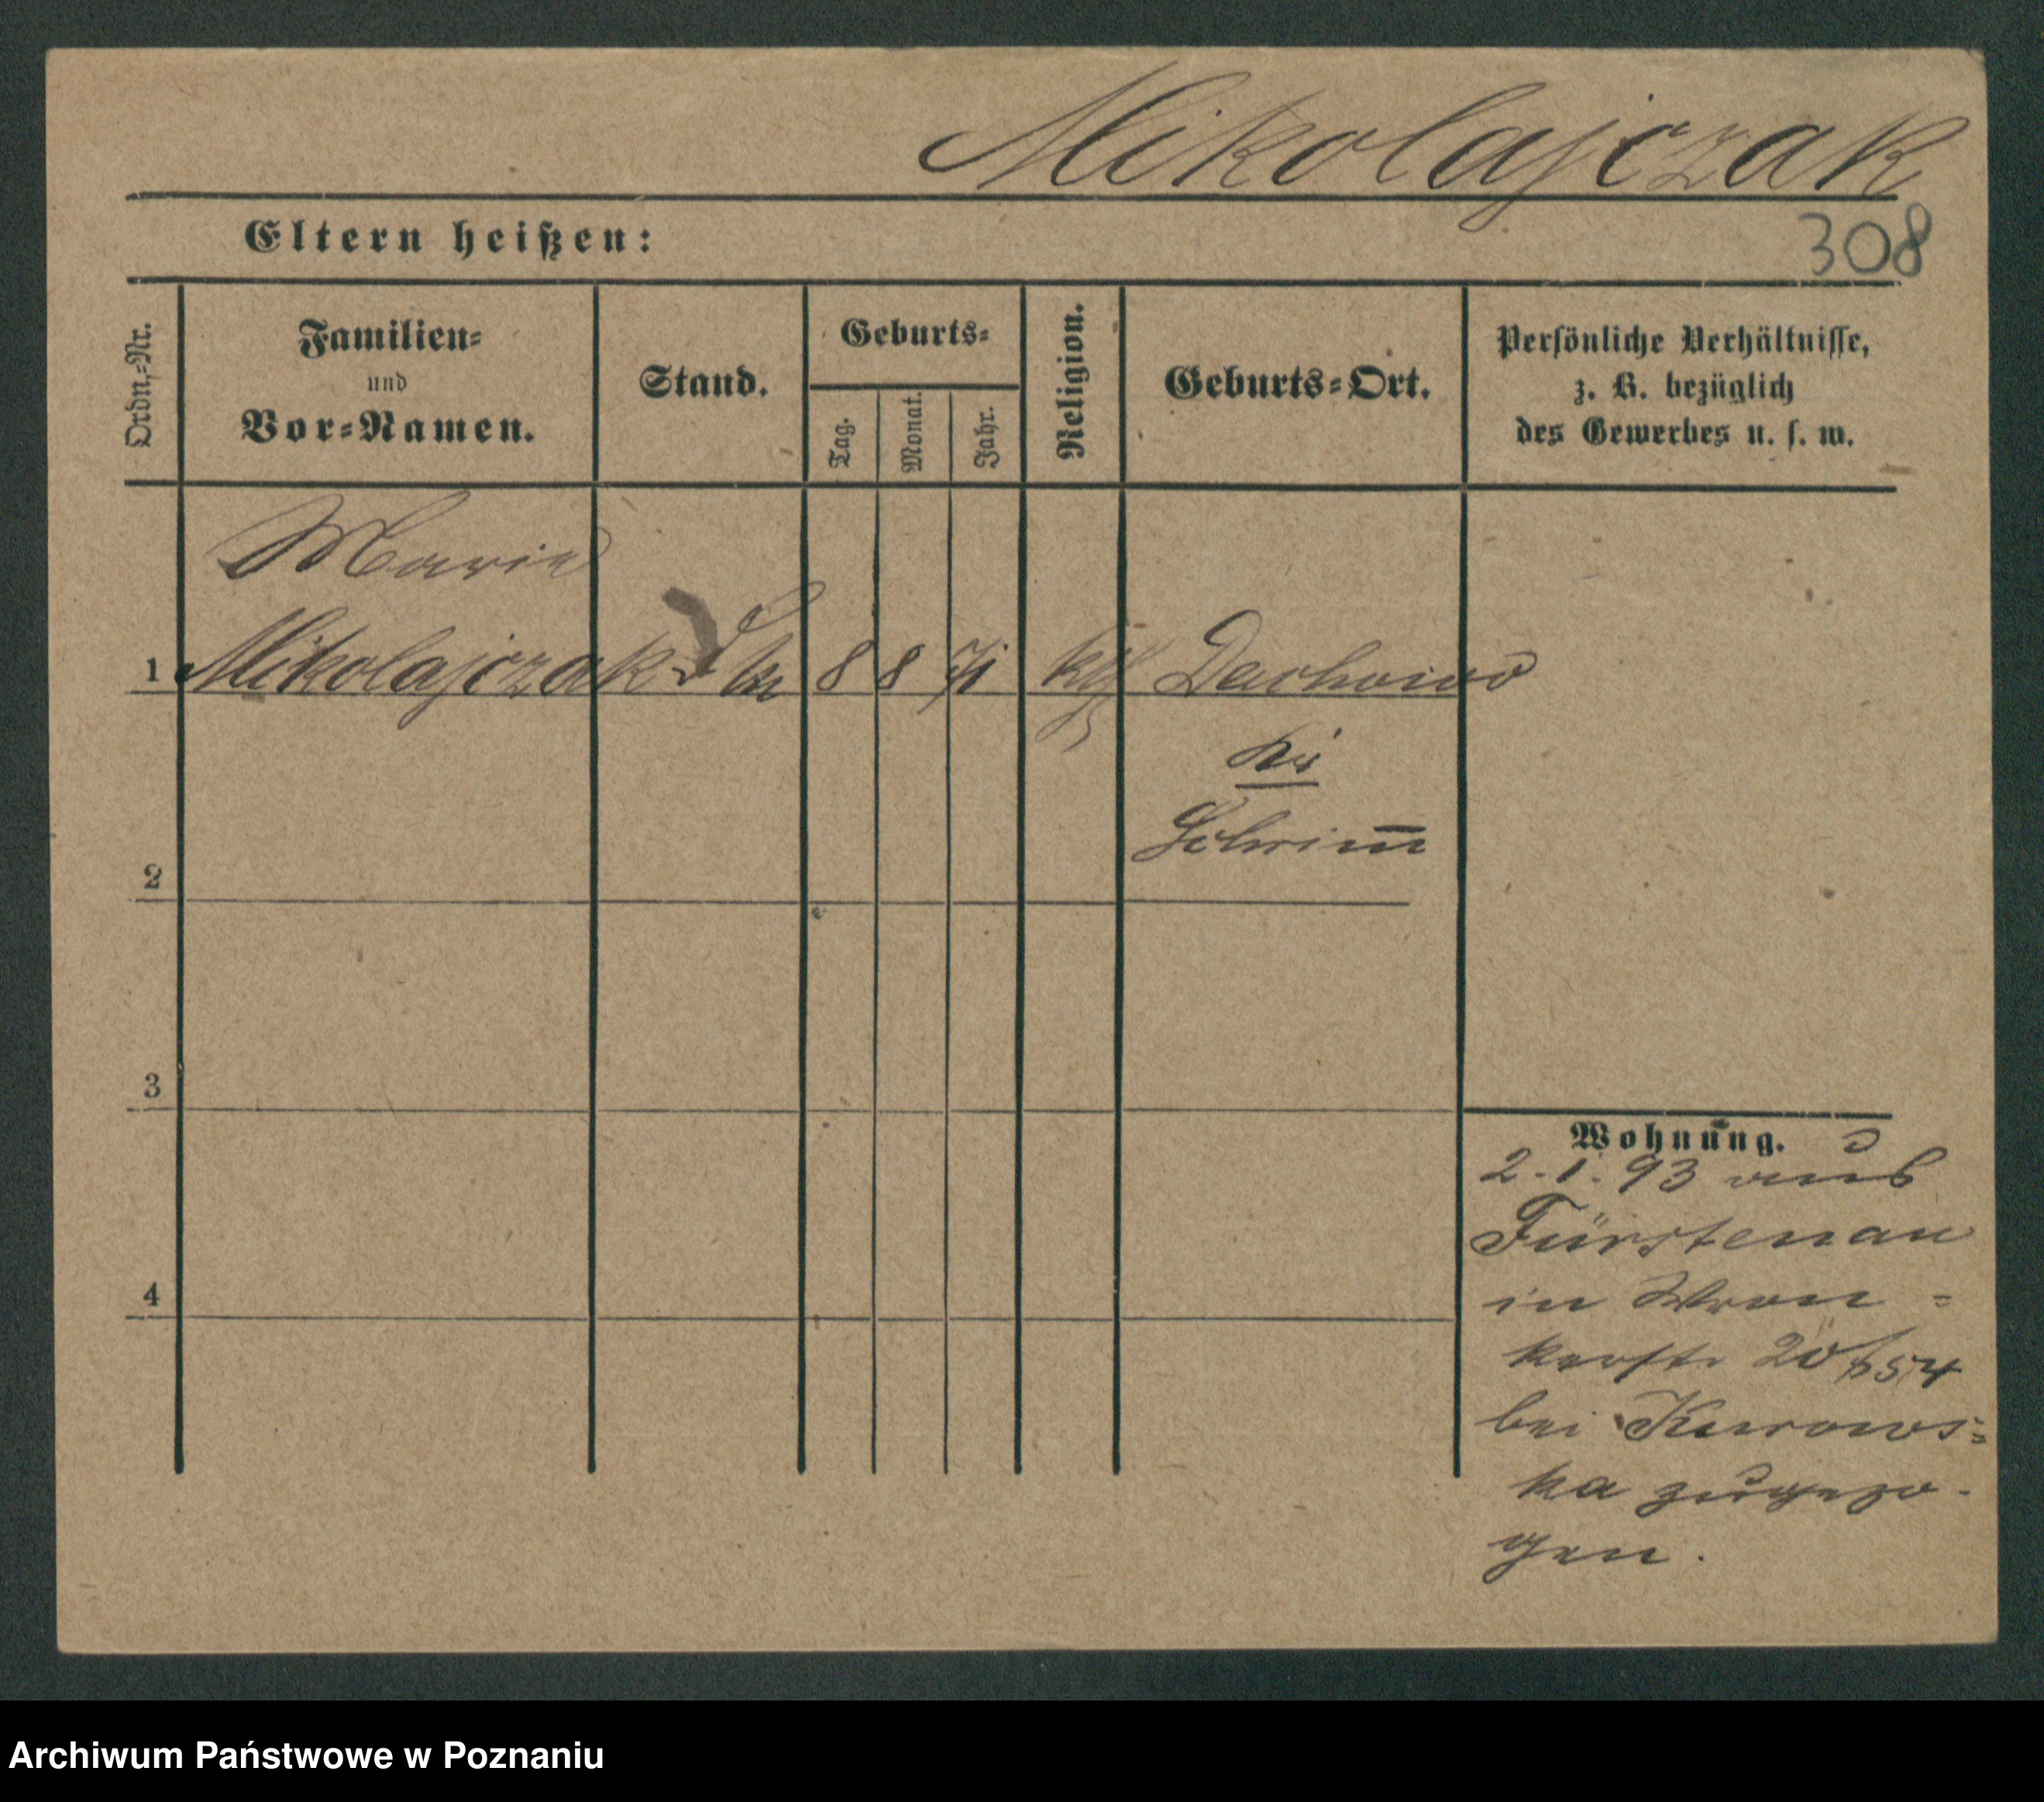 Mikolajczak
Eltern heißen:
308
Ordn.-Nr.
Familien-
und
Vor-Namen.
Stand.
Geburts-
Tag.
Monat.
Jahr.
Religion.
Geburts-Ort.
Persönliche Verhältnisse,
z. B. bezüglich
des Gewerbes u. s. w.
Marie
1 Mikolajczak 8 8 71 kth Dachowo
Kr
Schrim̅
2
3
4
Wohnung.
2. 1. 93 aus
Fürstenau
in Wron=
kerstr 20
bei Kurows=
ka zugezo-
gen.
Archiwum Państwowe w Poznaniu